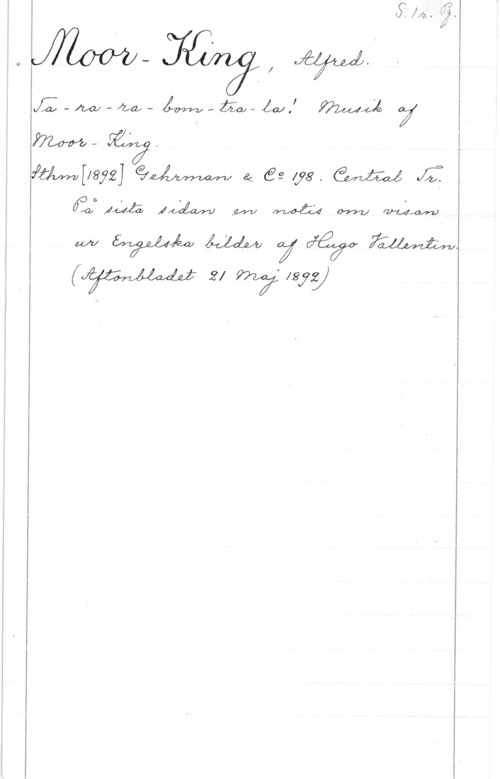 S. 1 r. Pf.
Moor-King, Alfred.
Ta-ra-ra-bom-tra-la! Musik af
Moor-King.
Sthm [1892] Gehrman & Co 198. Central Tr.
På sista sidan en notis om visan
ur Engelska bilder af Hugo Vallentin.
(Aftonbladet 21 Maj 1892)